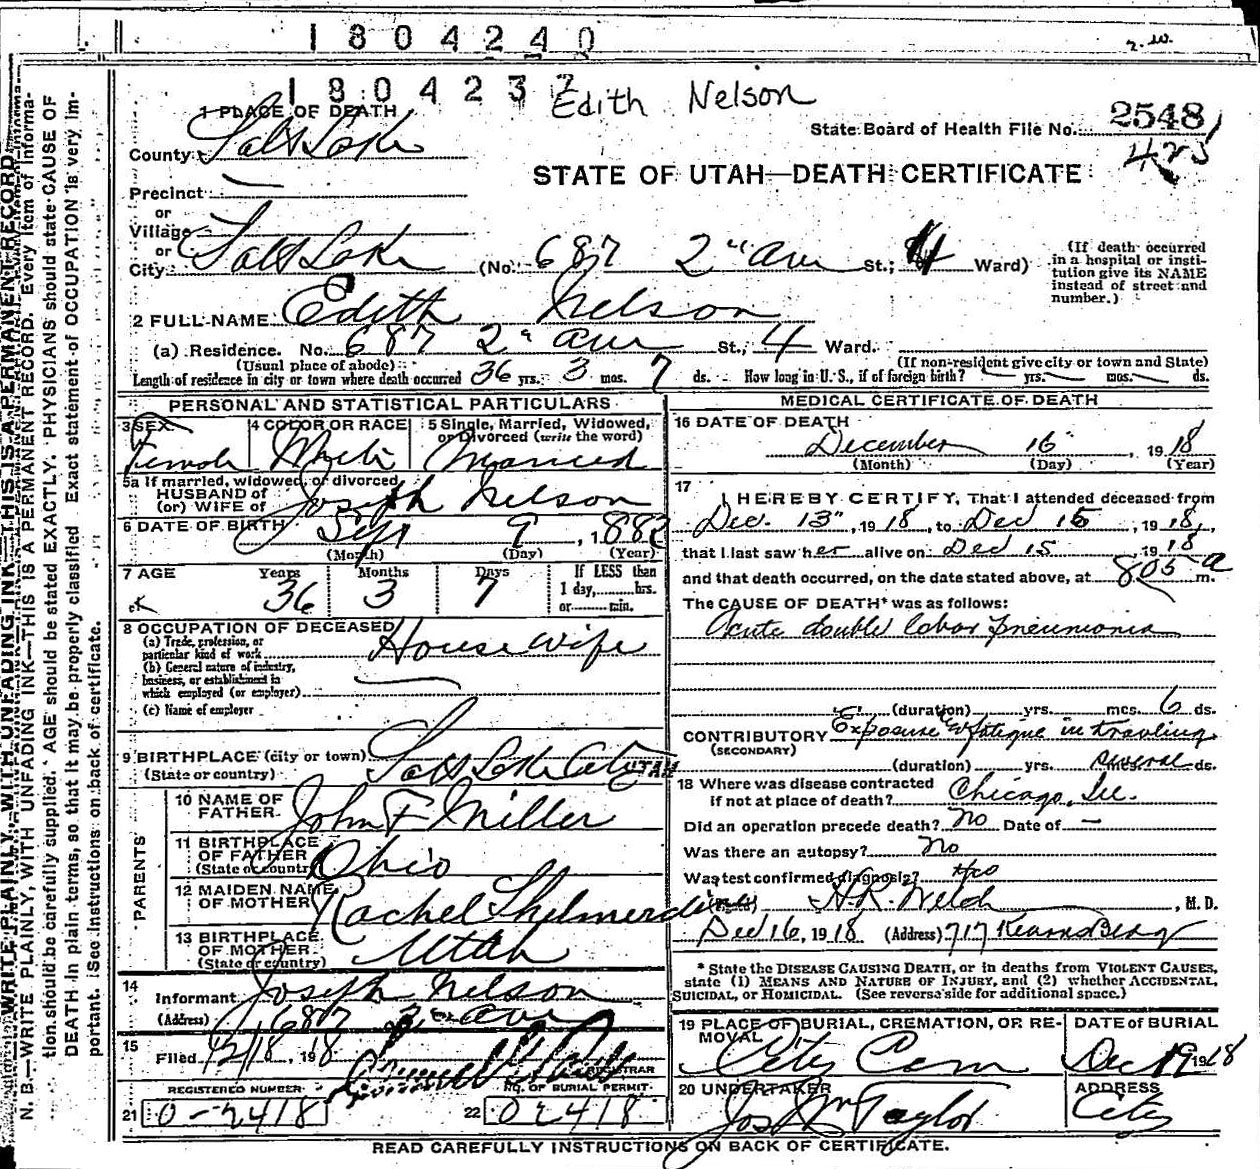 1804240
1804237
Edith Nelson
State Board of Health File No. 2548
425
1 PLACE OF DEATH
County Salt Lake
STATE OF UTAH—DEATH CERTIFICATE
Precinct
or
Village
or
City Salt Lake (No. 687 2" Ave St.; 4 Ward)
(If death occurred in a hospital or insti-
tution give its NAME instead of street and number.)
2 FULL NAME Edith Nelson
(a) Residence. No. 687 2" Ave St., 4 Ward.
(Usual place of abode) (If non-resident give city or town and State)
Length of residence in city or town where death occurred 36 yrs. 3 mos. 7 ds. How long in U. S., if of foreign birth? yrs. mos. ds.
PERSONAL AND STATISTICAL PARTICULARS
3 SEX Female
4 COLOR OR RACE White
5 Single, Married, Widowed, or Divorced (write the word) Married
5a If married, widowed, or divorced
HUSBAND of
(or) WIFE of Joseph Nelson
6 DATE OF BIRTH Sept 9, 1882
(Month) (Day) (Year)
7 AGE Years Months Days If LESS than
ok 36 3 7 1 day,......hrs.
or......min.
8 OCCUPATION OF DECEASED
(a) Trade, profession, or particular kind of work Housewife
(b) General nature of industry, business, or establishment in which employed (or employer)
(c) Name of employer
9 BIRTHPLACE (city or town) Salt Lake City UTAH
(State or country)
PARENTS
10 NAME OF FATHER John F Miller
11 BIRTHPLACE OF FATHER Ohio
(State or country)
12 MAIDEN NAME OF MOTHER Rachel Skelmerdine
13 BIRTHPLACE OF MOTHER Utah
(State or country)
14
Informant Joseph Nelson
(Address) 687 2" Ave
15
Filed 12/18, 1918
REGISTRAR
REGISTERED NUMBER NO. OF BURIAL PERMIT
21 0-2418 22 02418
MEDICAL CERTIFICATE OF DEATH
16 DATE OF DEATH
December 16, 1918
(Month) (Day) (Year)
17
I HEREBY CERTIFY, That I attended deceased from
Dec. 13", 1918, to Dec 15, 1918,
that I last saw her alive on Dec 15, 1918
and that death occurred, on the date stated above, at 805 a m.
The CAUSE OF DEATH* was as follows:
Acute double lobar pneumonia
(duration) yrs. mcs. 6 ds.
CONTRIBUTORY Exposure & fatigue in traveling
(SECONDARY)
(duration) yrs. several ds.
18 Where was disease contracted
if not at place of death? Chicago, Ill.
Did an operation precede death? No Date of —
Was there an autopsy? No
Was test confirmed diagnosis? No
H.R. Welch, M. D.
Dec 16, 1918 (Address) 717 Kearns Bldg
* State the DISEASE CAUSING DEATH, or in deaths from VIOLENT CAUSES,
state (1) MEANS AND NATURE OF INJURY, and (2) whether ACCIDENTAL,
SUICIDAL, or HOMICIDAL. (See reverse side for additional space.)
19 PLACE OF BURIAL, CREMATION, OR RE-
MOVAL City Cem
DATE OF BURIAL
Dec 19 1918
20 UNDERTAKER Jos Wm Taylor
ADDRESS City
READ CAREFULLY INSTRUCTIONS ON BACK OF CERTIFICATE.
WRITE PLAINLY, WITH UNFADING INK—THIS IS A PERMANENT RECORD
N. B.—WRITE PLAINLY, WITH UNFADING INK—THIS IS A PERMANENT RECORD. Every item of informa-
tion should be carefully supplied. AGE should be stated EXACTLY. PHYSICIANS should state CAUSE OF
DEATH in plain terms, so that it may be properly classified. Exact statement of OCCUPATION is very im-
portant. (See instructions on back of certificate.